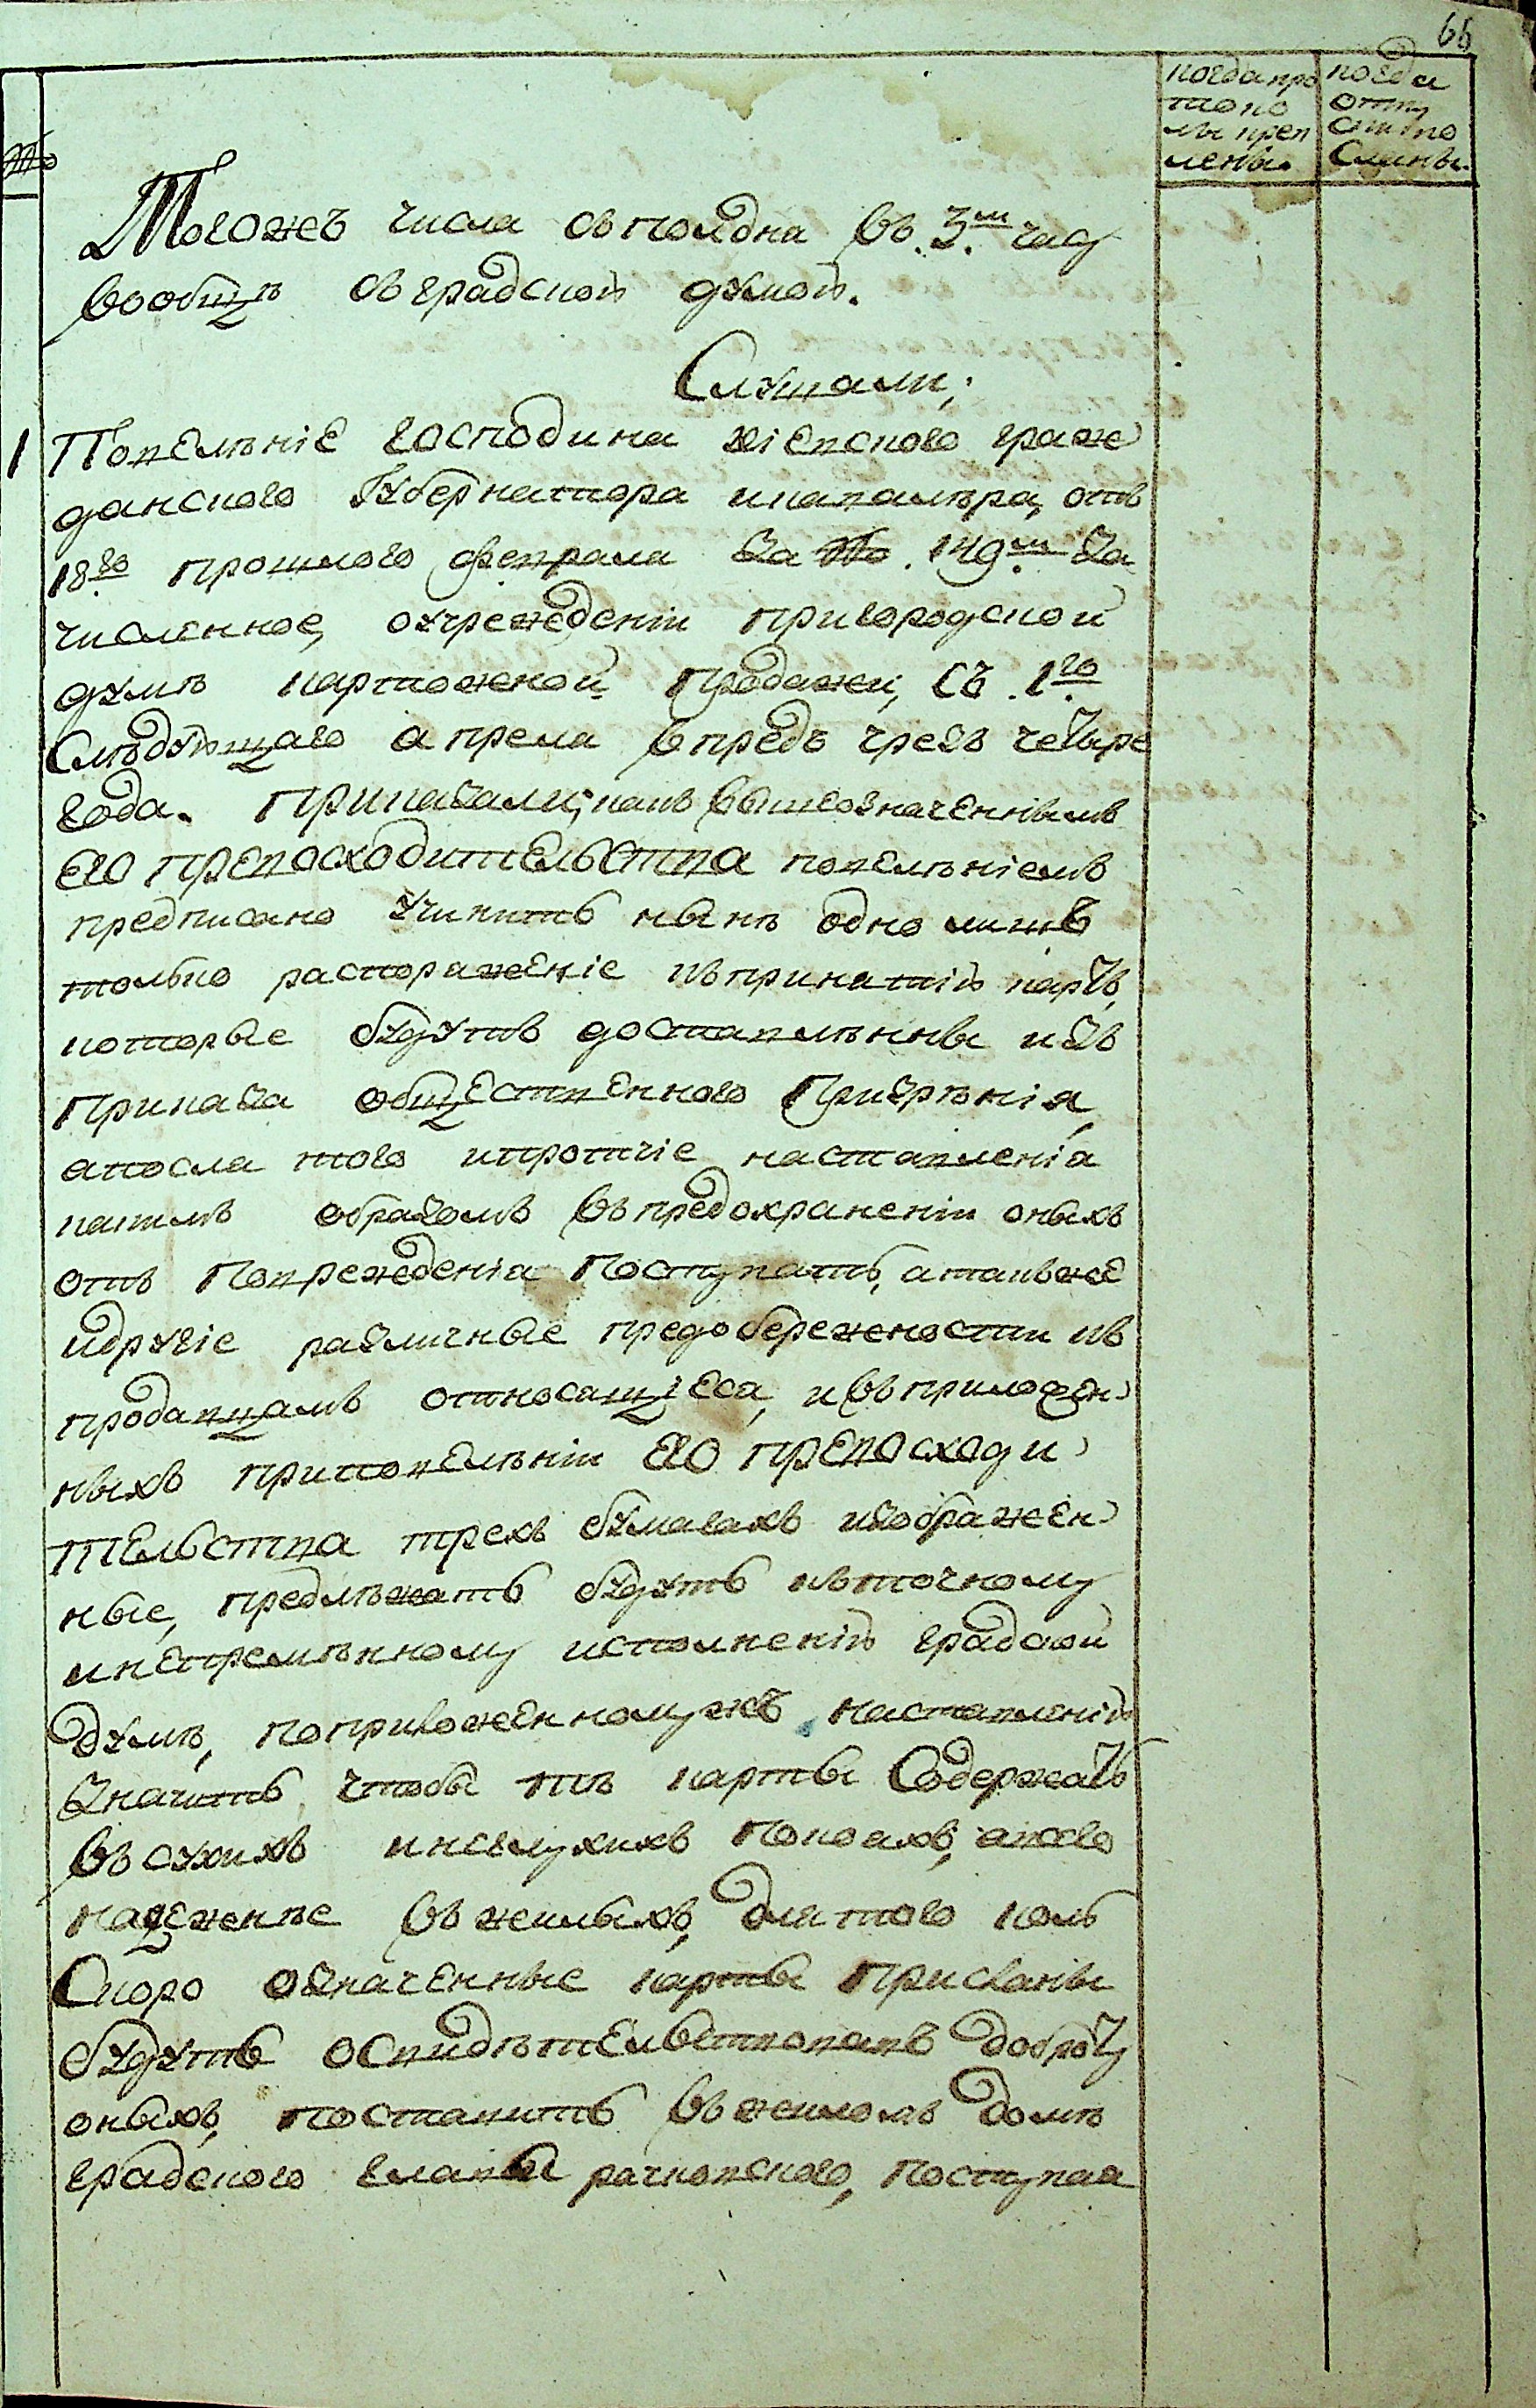 66
когда про
токо
лы креп
лены.
когда
отпу
скипо
сланы.
№
Тогожъ числа съ полудна въ 3м часу
вообщѣ съ градской думой.
Слушали;
1 Повелѣніе господина кіевского граж
данского губернатора икавалѣра, отъ
18го прошлого февраля за № 149м за
численное, оучрежденіи пригородской
думѣ картожной продажи, съ 1го
Слѣдующаго апреля впредь чрезъ четыре
года. Приказали; какъ вышеозначеннымъ
его превосходительства повелѣніемъ
предписано учинить нынѣ одно лишъ
только распоряженіе къпринятію картъ,
которые будутъ доставлѣнны изъ
приказа общественного призрѣнія,
апосля того ипротчіе наставленія
какимъ образомъ въпредохраненіи оныхъ
отъ поврежденія поступать, атакъже
идругіе различные предобережености къ
продавцамъ относящіеся, и въприложен
ныхъ приповелѣніи его превосходи
тельства трехъ бумагахъ изображен
ные, предлѣжать будутъ къточному
инепремѣнному исполненію градской
думѣ, поприложенномужъ наставленію
значитъ, чтобы тѣ карты содержать
въсухихъ инеглухихъ покояхъ, авсево
надежнѣе въжилыхъ, длятого коль
скоро означенные карты присланы
будутъ освидѣтельствовавъ доброту
оныхъ, поставить въжиломъ домѣ
градского главы рачковского, поступая